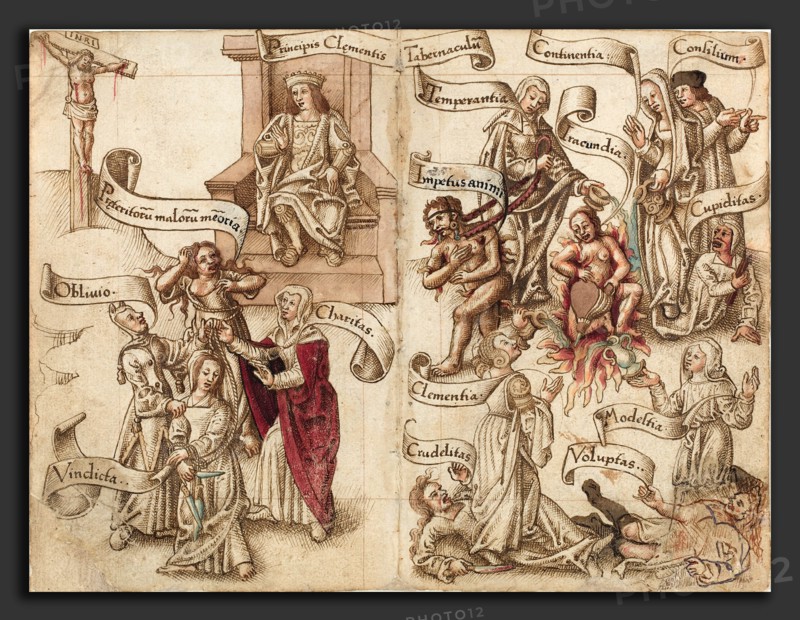 INRI
Principis Clementis
Tabernaculū
Continentia
Consilium.
Temperantia
Iracundia.
Impetus animi
Cupiditas.
Preteritorū maloru meōria.
Oblivio.
Charitas.
Clementia.
Modestia
Crudelitas
Voluptas..
Vindicta..
PHOTO12
PHOTO12
PHOTO12